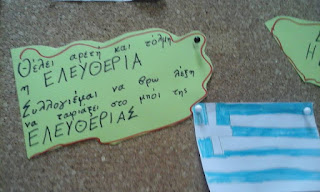 Θέλει αρετή και τόλμη
η ΕΛΕΥΘΕΡΙΑ
Συλλογιέμαι να βρω λέξη
να ταιριάζει στο μπόι της
ΕΛΕΥΘΕΡΙΑΣ
Η